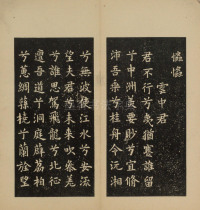 儋儋
雲中君
君不行兮夷猶蹇誰留
兮中洲美要眇兮宜修
沛吾乘兮桂舟令沅湘
兮無波使江水兮安流
望夫君兮未來吹參差
兮誰思駕飛龍兮北征
邅吾道兮洞庭薜荔柏
兮蕙綢蓀橈兮蘭旌望